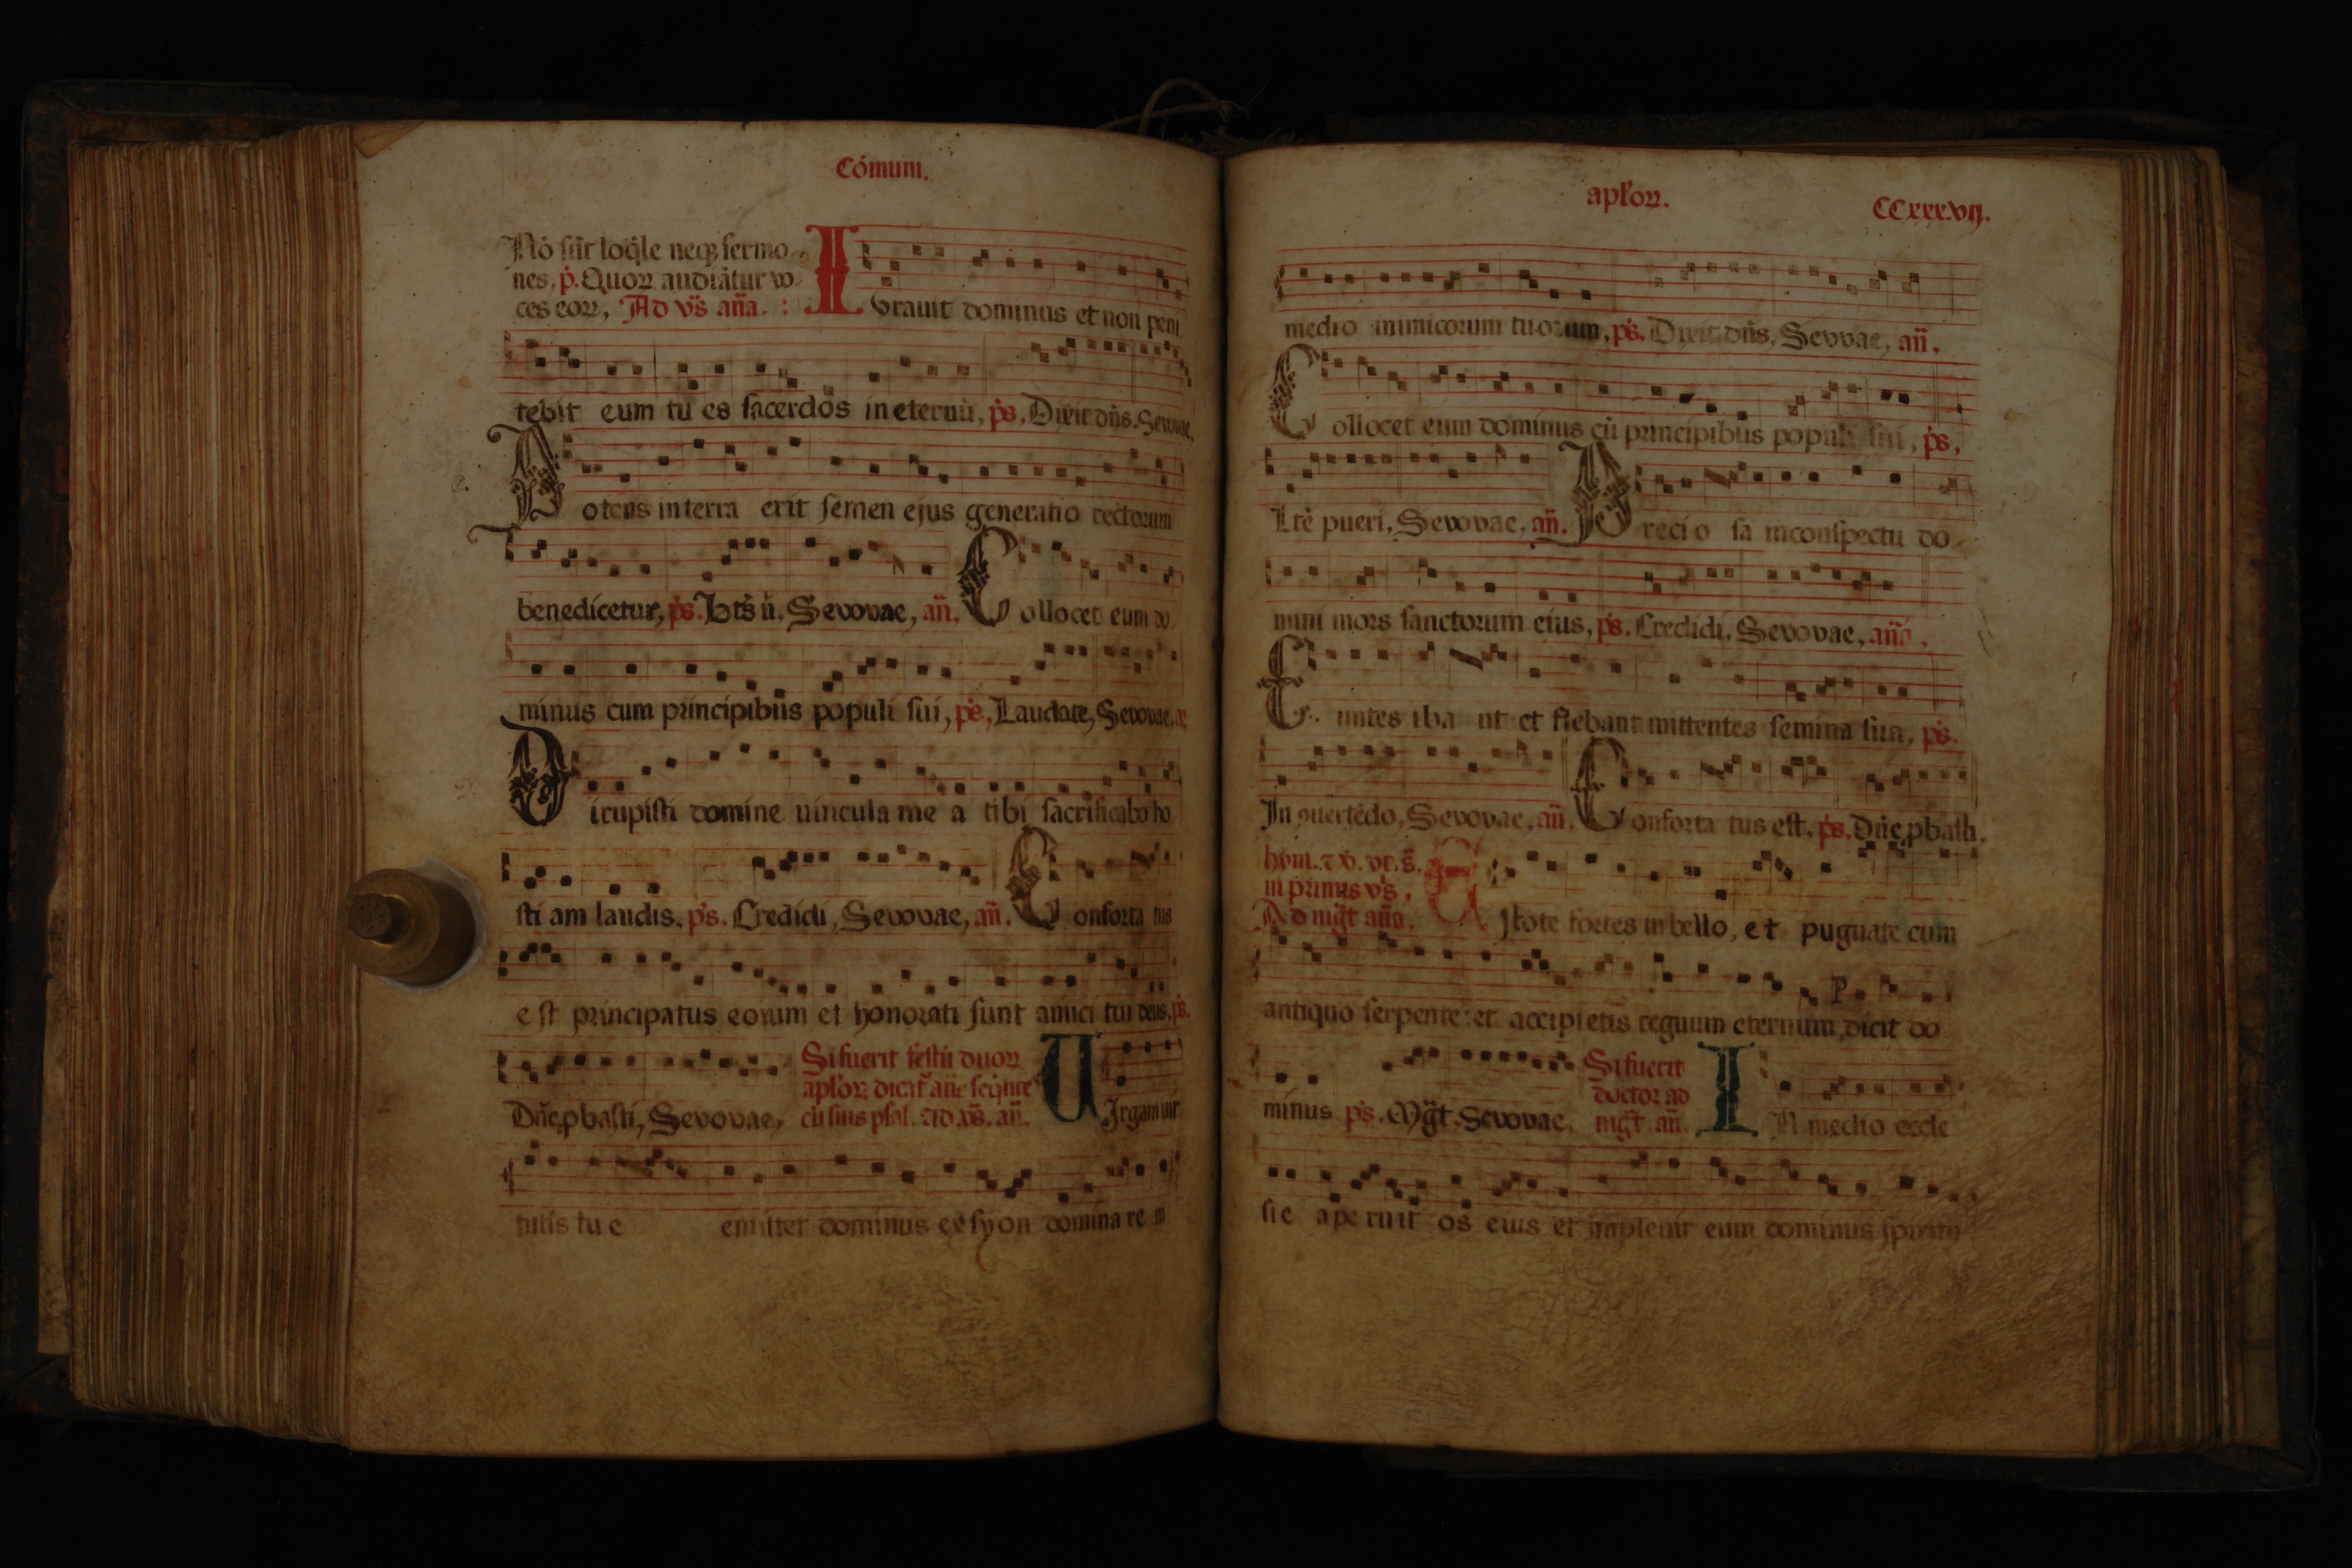 Cómum.
Nō sūt loq̄le neqꝫ sermo
nes, p̄. Quoꝝ audiātur vo
ces eoꝝ, Ad vs̄ an̄a.
Iurauit dominus et non peni
tebit eum tu es sacerdos in eternū, ps̄. Dixit dn̄s. Sevovae,
Potens in terra erit semen ejus generatio rectorum
benedicetur, ps̄. Bt̄s ū. Sevovae, an̄. Collocet eum do
minus cum principibus populi sui, ps̄, Laudate, Sevovae, a
Dirupisti domine uincula me a tibi sacrificabo ho
sti am laudis, ps̄. Credidi, Sevovae, an̄. Conforta tus
e st principatus eorum et honorati sunt amici tui deus, ps̄.
Dn̄e pbasti, Sevovae,
Si fuerit festū duoꝝ
apl'oꝝ dicāt an̄e seq̄nte
cū suis psal. Ad vs̄. an̄.
UJrgam uir
tutis tu e emittet dominus ex syon domina re in
apl'oꝝ.
CCxxxvij.
medio inimicorum tuorum, ps̄. Dixit dn̄s, Sevovae, an̄.
Collocet eum dominus cū principibus populi sui, ps̄,
Ltē pueri, Sevovae. an̄. Preci o sa in conspectu do
mini mors sanctorum eius, ps̄. Credidi. Sevovae, an̄a.
Euntes iba nt et flebant mittentes semina sua, ps̄.
In ꝯuertēdo, Sevovae, an̄. Conforta tus est, ps̄. Dn̄e pbasti.
in primis vs̄,
Ad mgt̄ an̄a.
EStote fortes in bello, et pugnate cum
antiquo serpente: et accipietis regnum eternum, dicit do
minus ps̄. Mgt̄. Sevovae,
Si fuerit
doctor ad
mgt̄ an̄.
IN medio eccle
sie ape ruit os eius et impleuit eum dominus spiritu